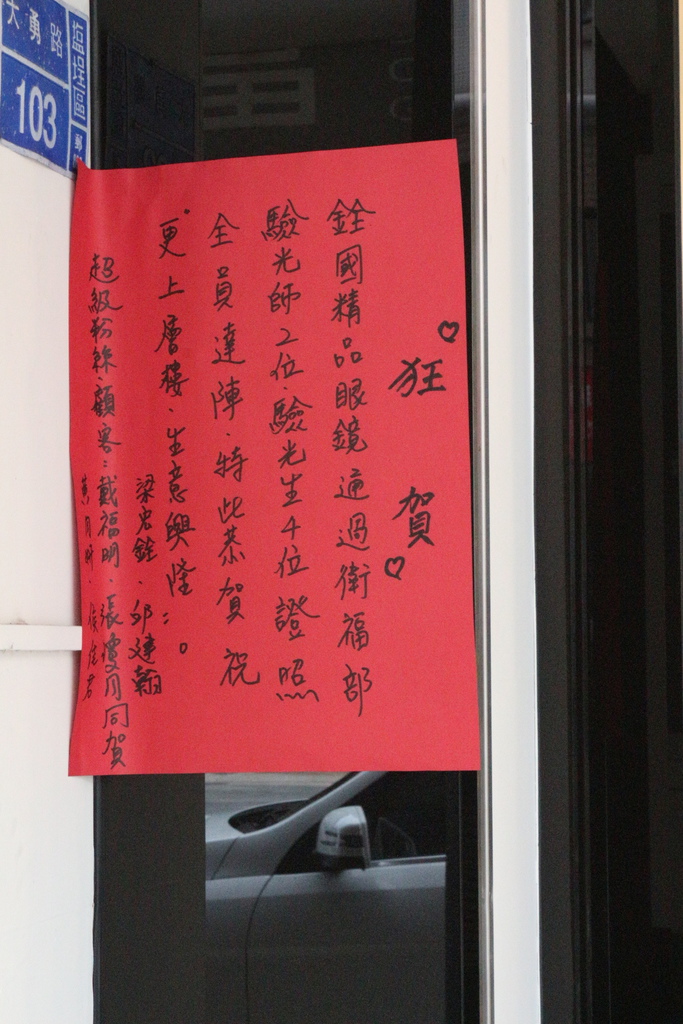 大勇路
103
塩埕區
狂賀
銓國精品眼鏡通過衛福部
驗光師2位、驗光生4位證照
全員達陣、特此恭賀 祝
更上層樓、生意興隆
梁忠銓、邱建翰
超級粉絲、顧客：戴福明、張瓊月同賀